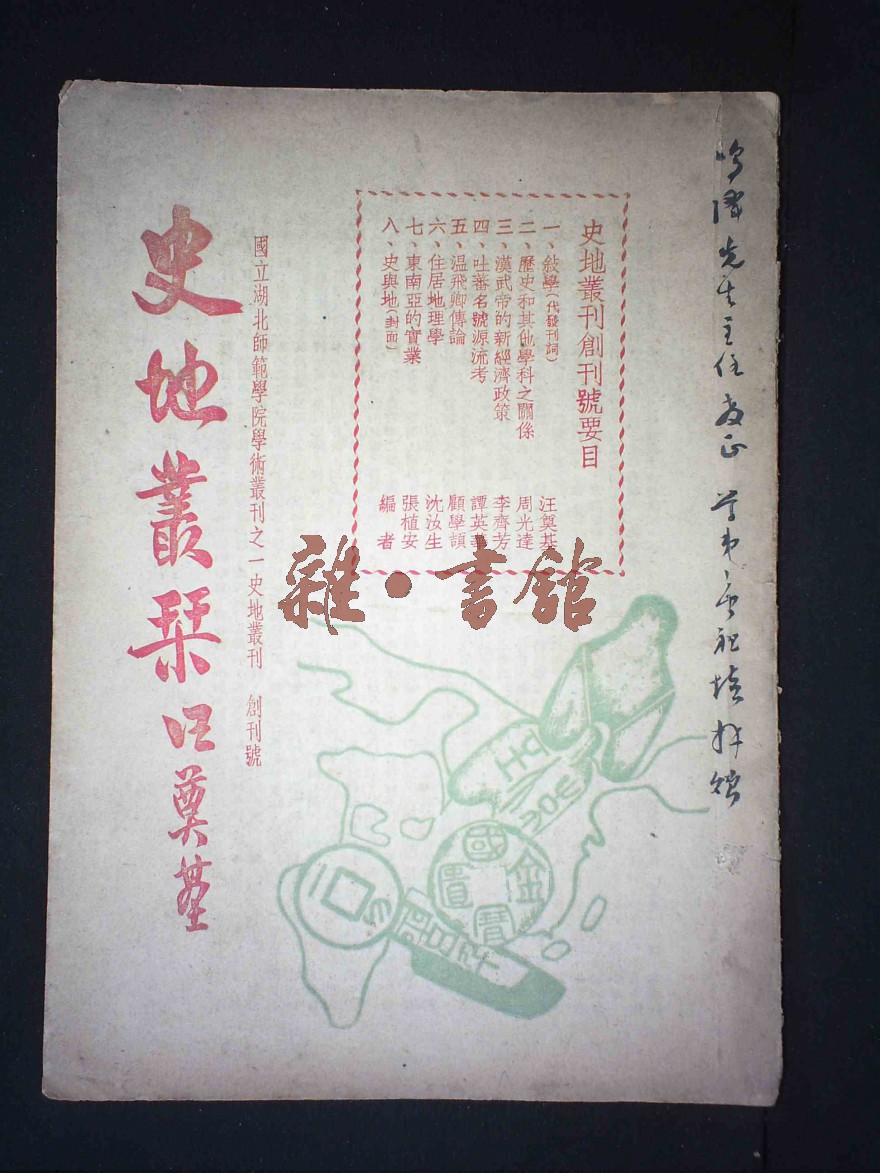 史地叢刊創刊號要目
一、敘學(代發刊詞) 汪奠基
二、歷史和其他學科之關係 周光達
三、漢武帝的新經濟政策 李齊芳
四、吐蕃名號源流考 譚英華
五、温飛卿傳論 顧學頡
六、住居地理學 沈汝生
七、東南亞的實業 張植安
八、史與地(封面) 編者
國立湖北師範學院學術叢刊之一史地叢刊 創刊號
史地叢栞 汪奠基
先生主任教正
雜·書館
國金寶匱